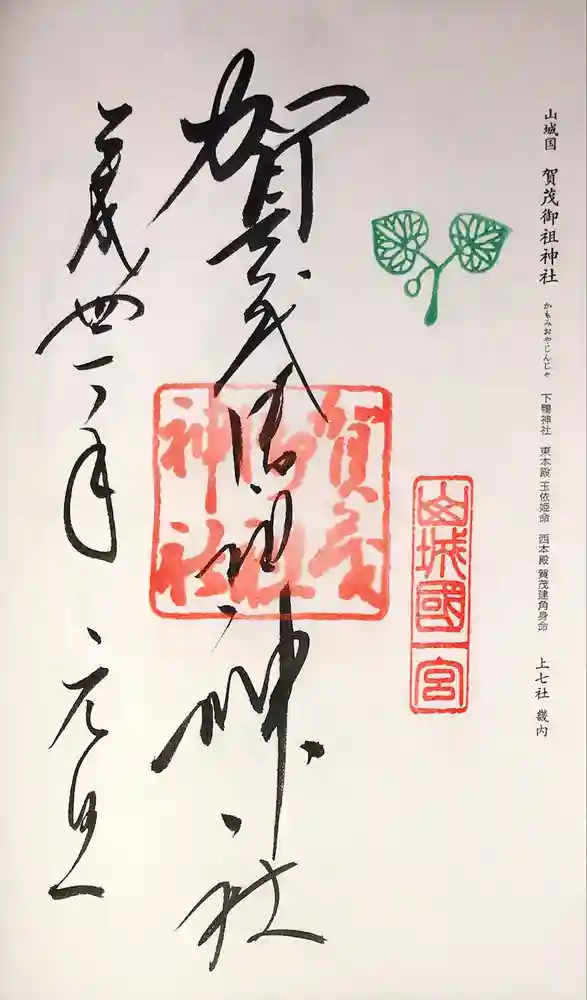 山城国 賀茂御祖神社 かもみおや・じんじゃ 下鴨神社 東本殿 玉依姫命 西本殿 賀茂建角身命 上七社 畿内
山城國一宮
賀茂御祖神社
賀茂
御祖
神社
平成卅一年 元旦